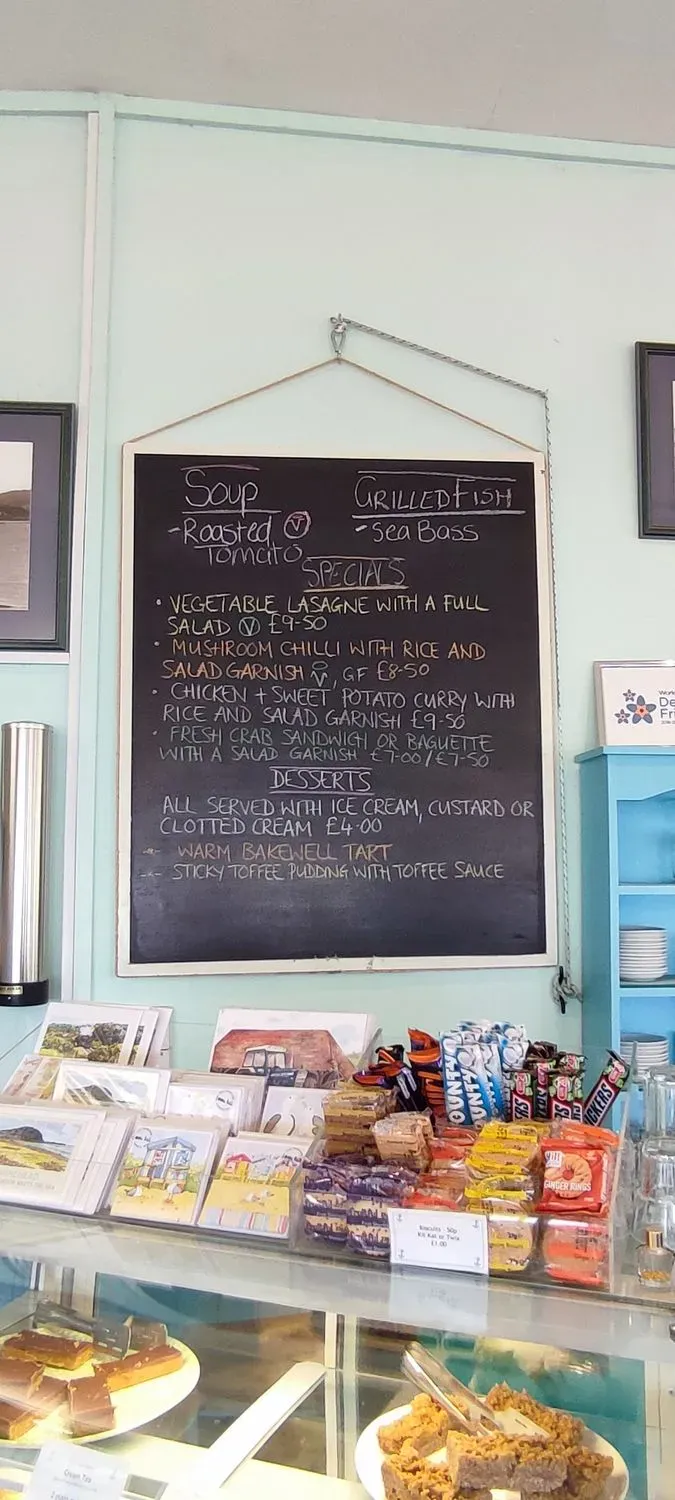 Soup
GRILLED FISH
- Roasted Ⓥ
Tomato
- Sea Bass
SPECIALS
• VEGETABLE LASAGNE WITH A FULL
SALAD Ⓥ £9-50
• MUSHROOM CHILLI WITH RICE AND
SALAD GARNISH V, GF £8-50
• CHICKEN + SWEET POTATO CURRY WITH
RICE AND SALAD GARNISH £9-50
• FRESH CRAB SANDWICH OR BAGUETTE
WITH A SALAD GARNISH £7-00/£7-50
DESSERTS
ALL SERVED WITH ICE CREAM, CUSTARD OR
CLOTTED CREAM £4-00
-- WARM BAKEWELL TART
-- STICKY TOFFEE PUDDING WITH TOFFEE SAUCE
BOUNTY
SNICKERS
GINGER RINGS
Biscuits - 50p
Kit Kat or Twix
£1.00
Cream Tea